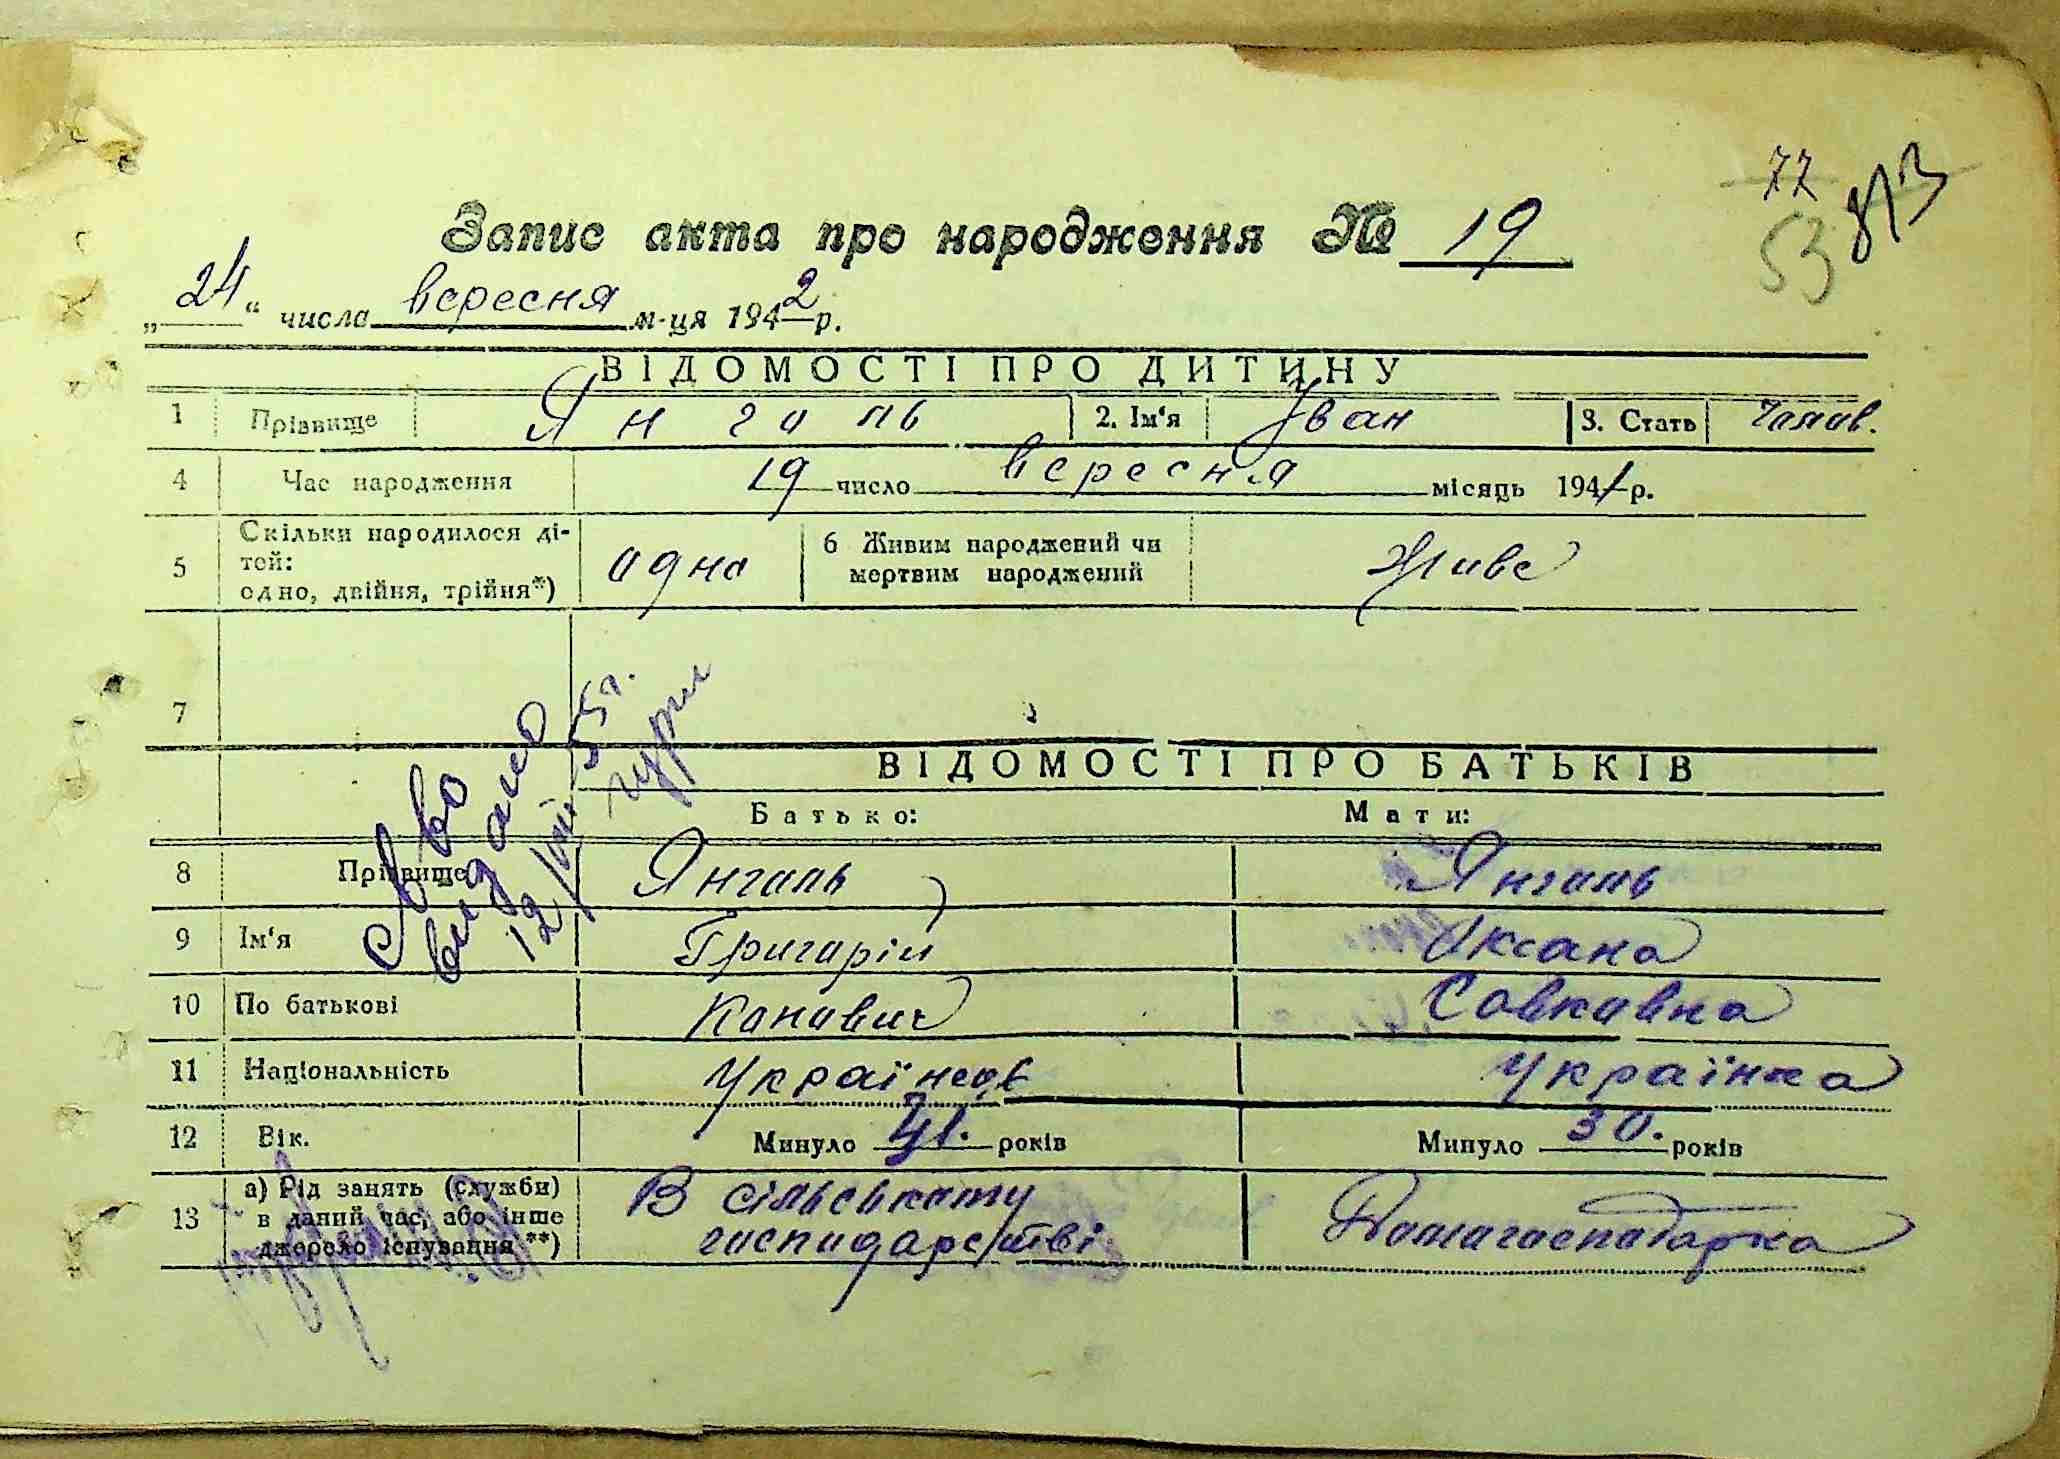 77
53 873
Запис акта про народження № 19
„24“ числа вересня м-ця 1942 р.
ВІДОМОСТІ ПРО ДИТИНУ
1 Прізвище Янголь 2. Ім'я Іван 3. Стать Чолов.
4 Час народження 19 число вересня місяць 1941 р.
5 Скільки народилося ді-
тей:
одно, двійня, трійня*) одно 6 Живим народжений чи
мертвим народжений Живе
7
ВІДОМОСТІ ПРО БАТЬКІВ
Батько: Мати:
8 Прізвище Янголь Янголь
9 Ім'я Григорій Оксана
10 По батькові Конович Совковна
11 Національність Українець Українка
12 Вік. Минуло 41. років Минуло 30. років
13 а) Рід занять (служби)
в даний час, або інше
джерело існування **) В сільському
господарстві Домогосподарка
видано